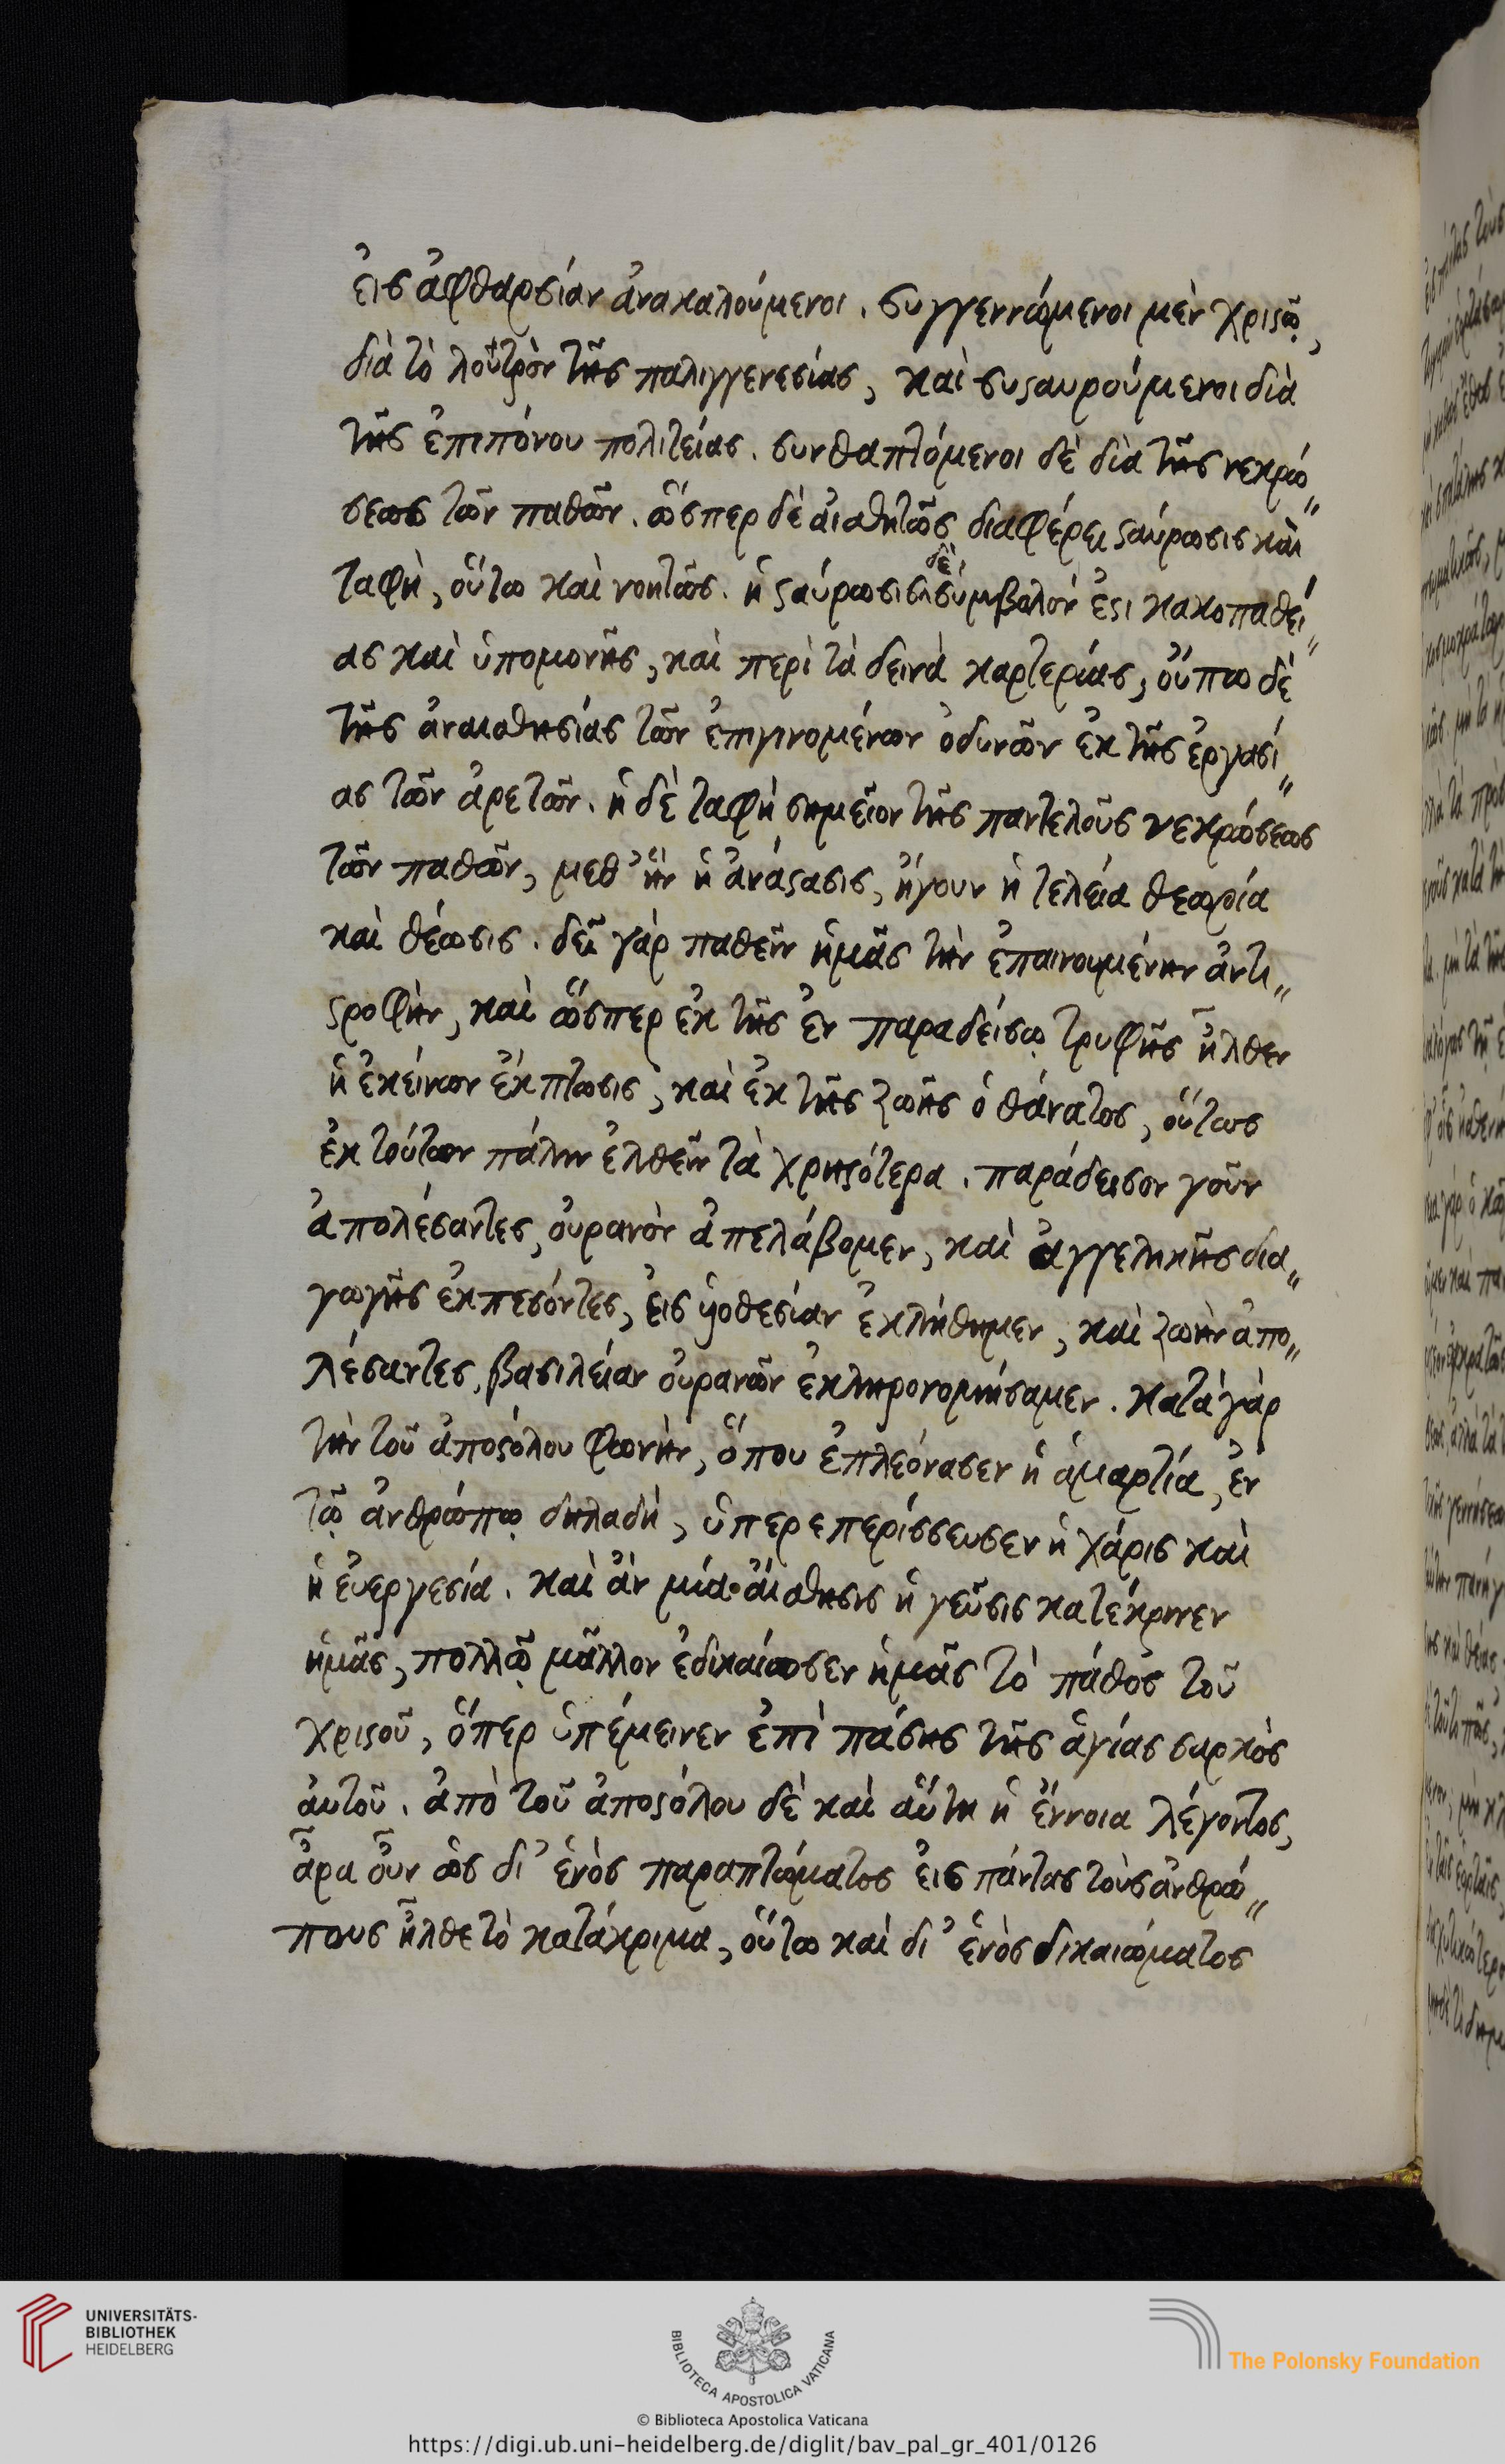 εἰς ἀφθαρσίαν ἀνακαλούμενοι. συγγεννώμενοι μὲν χριϛῷ,
διὰ τὸ λουτρὸν τῆς παλιγγενεσίας, καὶ συϛαυρούμενοι διὰ
τῆς ἐπιπόνου πολιτείας. συνθαπτόμενοι δὲ διὰ τῆς νεκρώ〃
σεως τῶν παθῶν. ὥσπερ δὲ αἰσθητῶς διαφέρει ϛαύρωσις καὶ
ταφὴ, οὕτω καὶ νοητῶς. ἡ ϛαύρωσις δὲ σύμβολόν ἐϛι κακοπαθεί〃
ας καὶ ὑπομονῆς, καὶ περὶ τὰ δεινὰ καρτερίας, οὔπω δὲ
τῆς ἀναισθησίας τῶν ἐπιγινομένων ὀδυνῶν ἐκ τῆς ἐργασί〃
ας τῶν ἀρετῶν. ἡ δὲ ταφὴ σημεῖον τῆς παντελοῦς νεκρώσεως
τῶν παθῶν, μεθ’ ἣν ἡ ἀνάϛασις, ἤγουν ἡ τελεία θεωρία
καὶ θέωσις. δεῖ γὰρ παθεῖν ἡμᾶς τὴν ἐπαινουμένην ἀντι〃
ϛροφὴν, καὶ ὥσπερ ἐκ τῆς ἐν παραδείσῳ τρυφῆς ἦλθεν
ἡ ἐκείνων ἔκπτωσις, καὶ ἐκ τῆς ζωῆς ὁ θάνατος, οὕτως
ἐκ τούτων πάλιν ἐλθεῖν τὰ χρηϛότερα. παράδεισον γοῦν
ἀπολέσαντες, οὐρανὸν ἀπελάβομεν, καὶ ἀγγελικῆς δια〃
γωγῆς ἐκπεσόντες, εἰς υἱοθεσίαν ἐκλήθημεν, καὶ ζωὴν ἀπο〃
λέσαντες, βασιλείαν οὐρανῶν ἐκληρονομήσαμεν. κατὰ γὰρ
τὴν τοῦ ἀποϛόλου φωνὴν, ὅπου ἐπλεόνασεν ἡ ἁμαρτία, ἐν
τῷ ἀνθρώπῳ δηλαδὴ, ὑπερεπερίσσευσεν ἡ χάρις καὶ
ἡ εὐεργεσία. καὶ ἂν μία αἴσθησις ἡ γεῦσις κατέκρινεν
ἡμᾶς, πολλῷ μᾶλλον ἐδικαίωσεν ἡμᾶς τὸ πάθος τοῦ
χριϛοῦ, ὅπερ ὑπέμεινεν ἐπὶ πάσης τῆς ἁγίας σαρκὸς
αὐτοῦ. ἀπὸ τοῦ ἀποϛόλου δὲ καὶ αὕτη ἡ ἔννοια λέγοντος,
ἆρα οὖν ὡς δι’ ἑνὸς παραπτώματος εἰς πάντας τοὺς ἀνθρώ〃
πους ἦλθε τὸ κατάκριμα, οὕτω καὶ δι’ ἑνὸς δικαιώματος
UNIVERSITÄTS-
BIBLIOTHEK
HEIDELBERG
BIBLIOTECA APOSTOLICA VATICANA
The Polonsky Foundation
© Biblioteca Apostolica Vaticana
https://digi.ub.uni-heidelberg.de/diglit/bav_pal_gr_401/0126